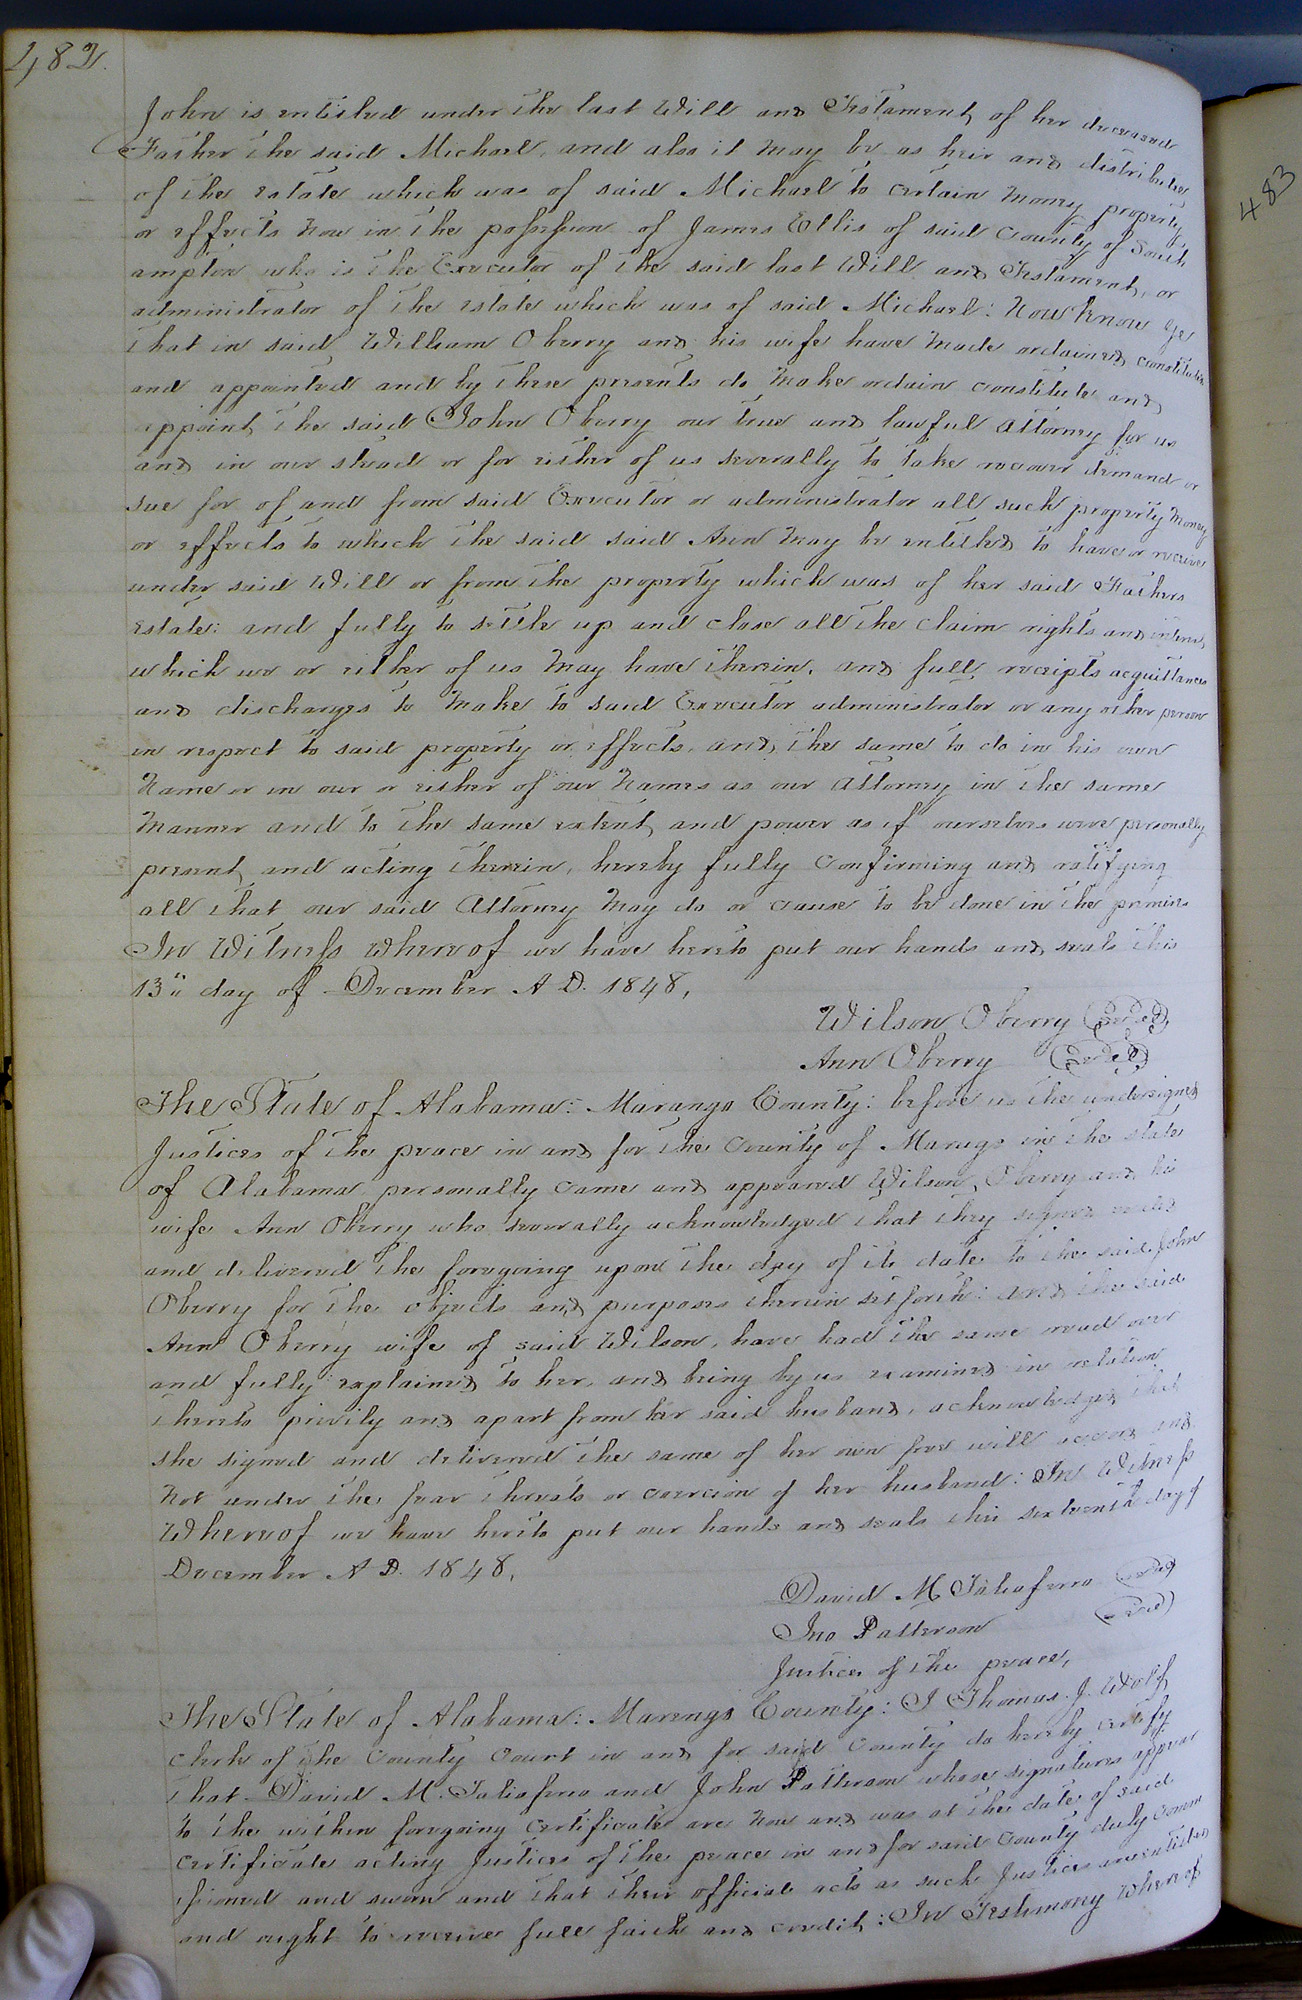 482.
John is entitled under the last Will and Testament of her deceased
Father the said Michael, and also it may be as heir and distributee
of the estate which was of said Michael to certain money property
or effects now in the possession of James Ellis of said County of South
ampton who is the Executor of the said last Will and Testament, or
administrator of the estate which was of said Michael: Now Know Ye
that in said William Oberry and his wife have made ordained constituted
and appointed and by these presents do make ordain constitute and
appoint the said John Oberry our true and lawful Attorney for us
and in our stead or for either of us severally to take recover demand or
sue for of and from said Executor or administrator all such property money
or effects to which the said said Ann may be entitled to have or receive
under said Will or from the property which was of her said Fathers
estate: and fully to settle up and close all the claim rights and interest
which we or either of us may have therein, and full receipts acquittances
and discharges to make to said Executor administrator or any other person
in respect to said property or effects, and the same to do in his own
Name or in our or either of our Names as our Attorney in the same
Manner and to the same extent and power as if ourselves were personally
present and acting therein, hereby fully confirming and ratifying
all that our said Attorney may do or cause to be done in the premises
In Witness whereof we have hereto put our hands and seals this
13" day of December A D. 1848,
Wilson Oberry (Seal)
Ann Oberry (Seal)
The State of Alabama: Marango County: before us the undersigned
Justices of the peace in and for the County of Marngo in the state
of Alabama personally came and appeared Wilson Oberry and his
wife Ann Oberry who severally acknowledged that they signed sealed
and delivered the foregoing upon the day of its date to the said John
Oberry for the objects and purposes therein set forth: and the said
Ann Oberry wife of said Wilson, have had the same read over
and fully explained to her, and being by us examined in relation
thereto privily and apart from her said husband, acknowledged that
she signed and delivered the same of her own free will accord and
not under the fear threats or coercion of her husband: In Witness
Whereof we have hereto put our hands and seals this sixteenth day of
December A D. 1848,
David M Taliaferro (Seal)
Jno Patterson (Seal)
Justices of the peace,
The State of Alabama: Marengo County: I Thomas J. Wolf
Clerk of the County Court in and for said County do hereby certify
that David M. Taliaferro and John Patterson whose signatures appear
to the within foregoing certificate are now and was at the date of said
certificate acting Justices of the peace in and for said County duly comm
issioned and sworn and that their official acts as such Justices are entitled
and ought to receive full faith and credit: In Testimony Whereof
483